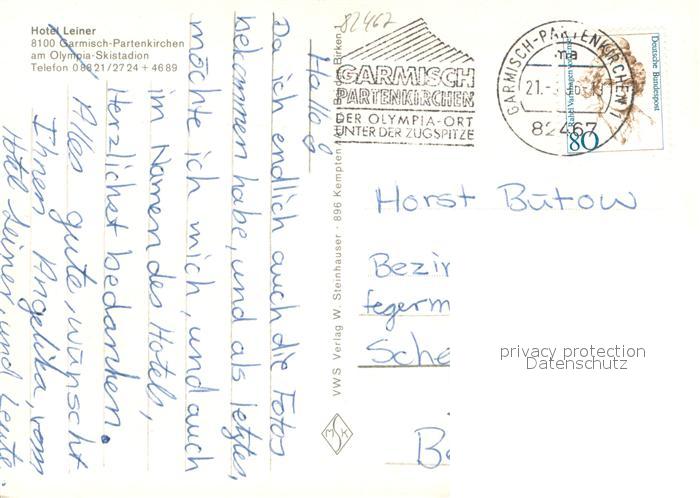 Hotel Leiner
8100 Garmisch-Partenkirchen
am Olympia-Skistadion
Telefon 08821/2724 + 4689
82467
GARMISCH
PARTENKIRCHEN
DER OLYMPIA-ORT
UNTER DER ZUGSPITZE
GARMISCH-PARTENKIRCHEN 1
ma
21.-
82467
Deutsche Bundespost
Rahel Varnhagen von Ense
80
Hallo
Da ich endlich auch die Fotos
bekommen habe, und als letztes,
möchte ich mich, und auch
im Namen des Hotels,
Herzlichst bedanken.
Alles gute, wünscht
Ihnen Angelika, vom
Hotel Leiner, und Leute.
VWS Verlag W. Steinhauser · 896 Kempten
Birken 1
MSK
Horst Bütow
Bezir
fegerm
Sche
Be
privacy protection
Datenschutz